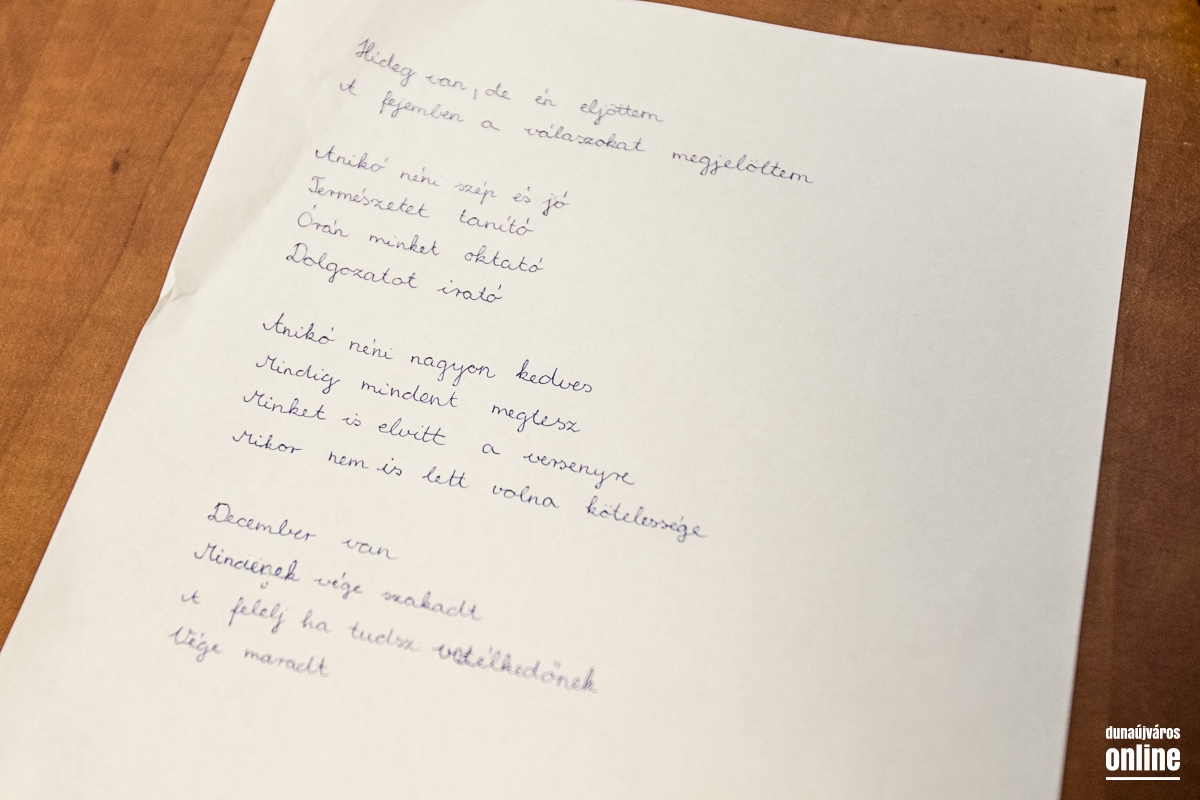 Hideg van, de én eljöttem
A fejemben a válaszokat megjelöltem
Anikó néni szép és jó
Természetet tanító
Órán minket oktató
Dolgozatot írató
Anikó néni nagyon kedves
Mindig mindent megtesz
Minket is elvitt a versenyre
Mikor nem is lett volna kötelessége
December van
Mindennek vége szakadt
A felelj ha tudsz vetélkedőnek
Vége maradt
dunaújváros
online